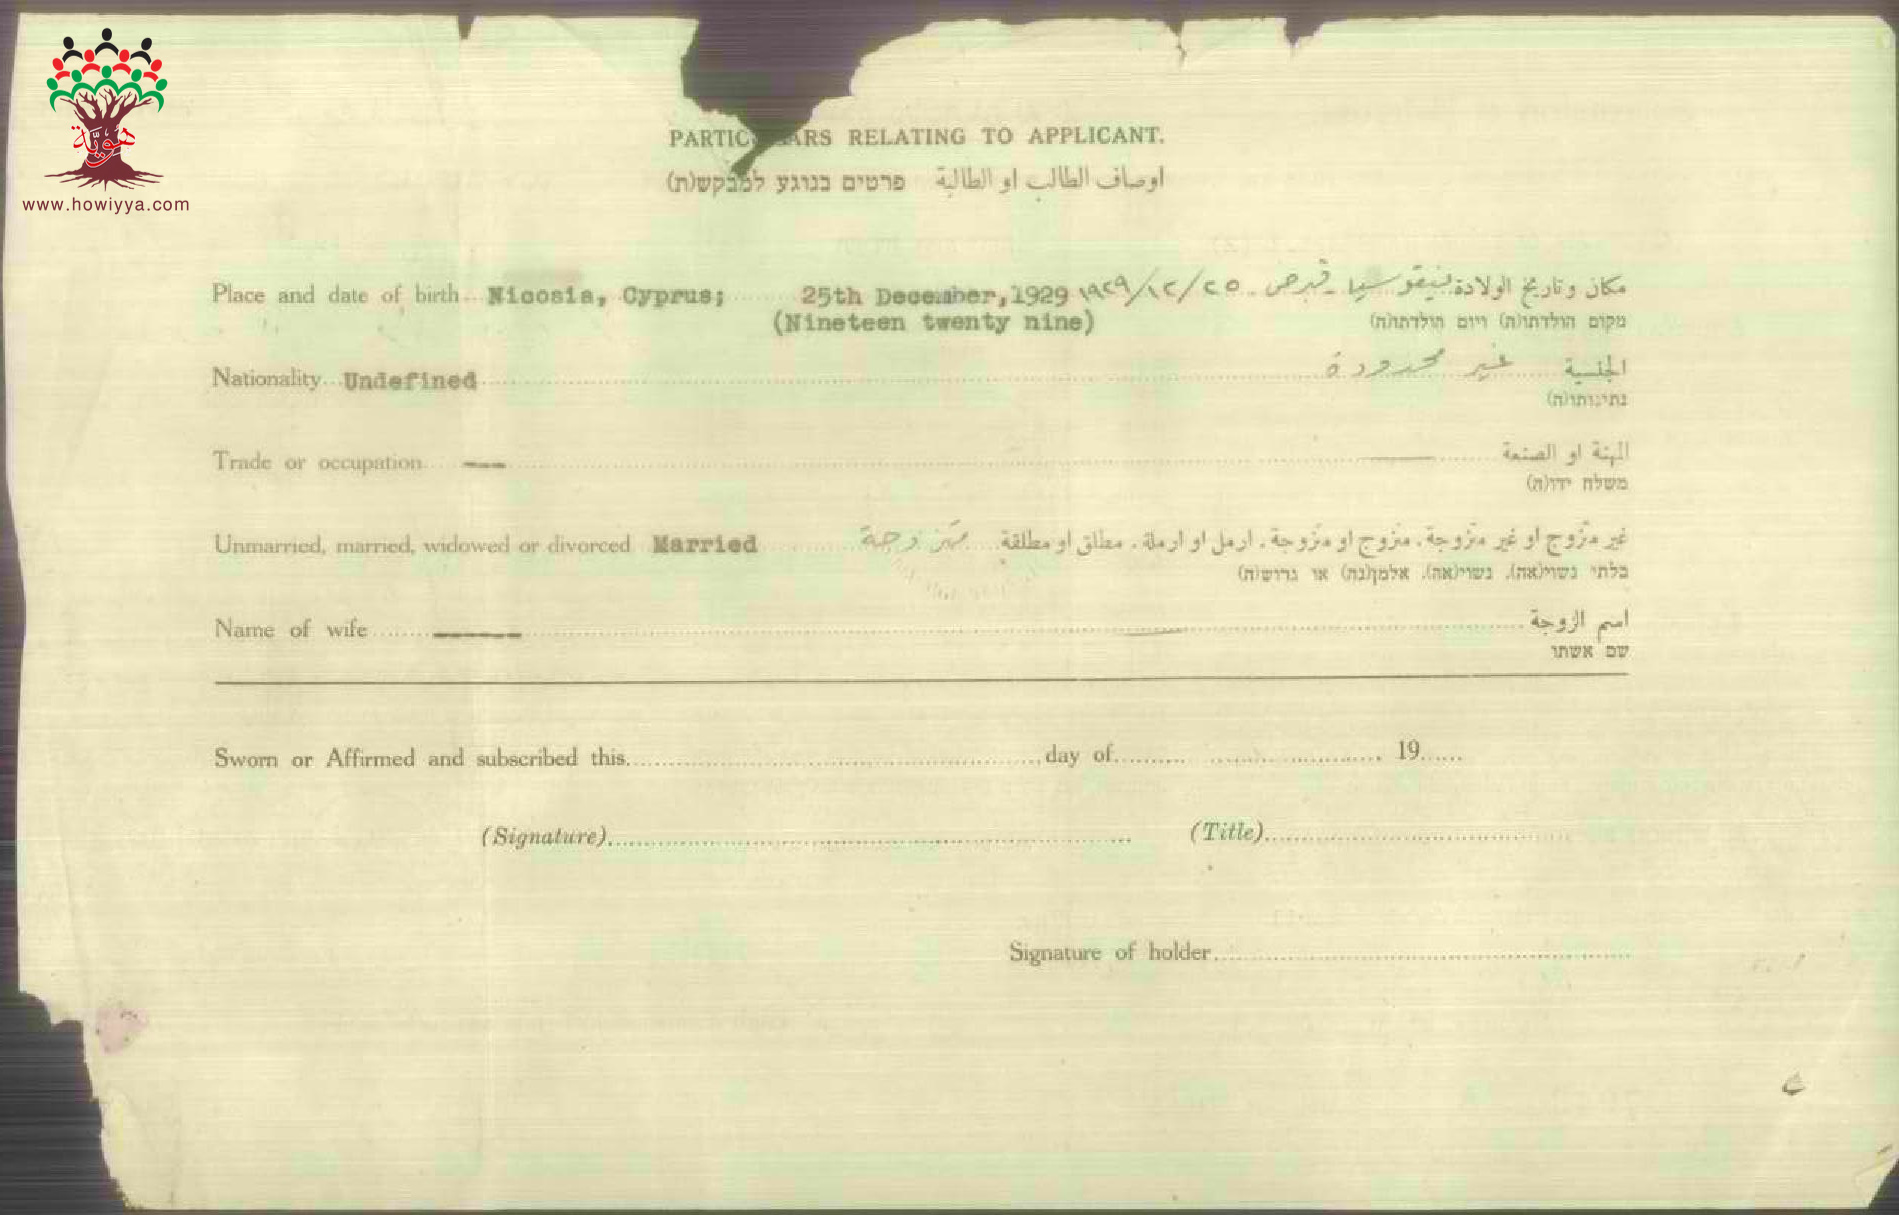 هويّة
www.howiyya.com
PARTIC ARS RELATING TO APPLICANT.
اوصاف الطالب او الطالبة פרטים בנוגע למבקש(ת)
Place and date of birth Nicosia, Cyprus; 25th December,1929 ١٩٢٩/١٢/٢٥ - نيقوسيا - قبرص مكان وتاريخ الولادة
(Nineteen twenty nine) מקום הולדתו(ה) ויום הולדתו(ה)
Nationality Undefined غير محدودة الجنسية
נתינותו(ה)
Trade or occupation — — المهنة او الصنعة
משלח ידו(ה)
Unmarried, married, widowed or divorced Married متزوجة غير متزوج او غير متزوجة، متزوج او متزوجة، ارمل او ارملة، مطلق او مطلقة
בלתי נשוי(אה), נשוי(אה), אלמן(נה) או גרוש(ה)
Name of wife — — اسم الزوجة
שם אשתו
Sworn or Affirmed and subscribed this day of 19
(Signature) (Title)
Signature of holder